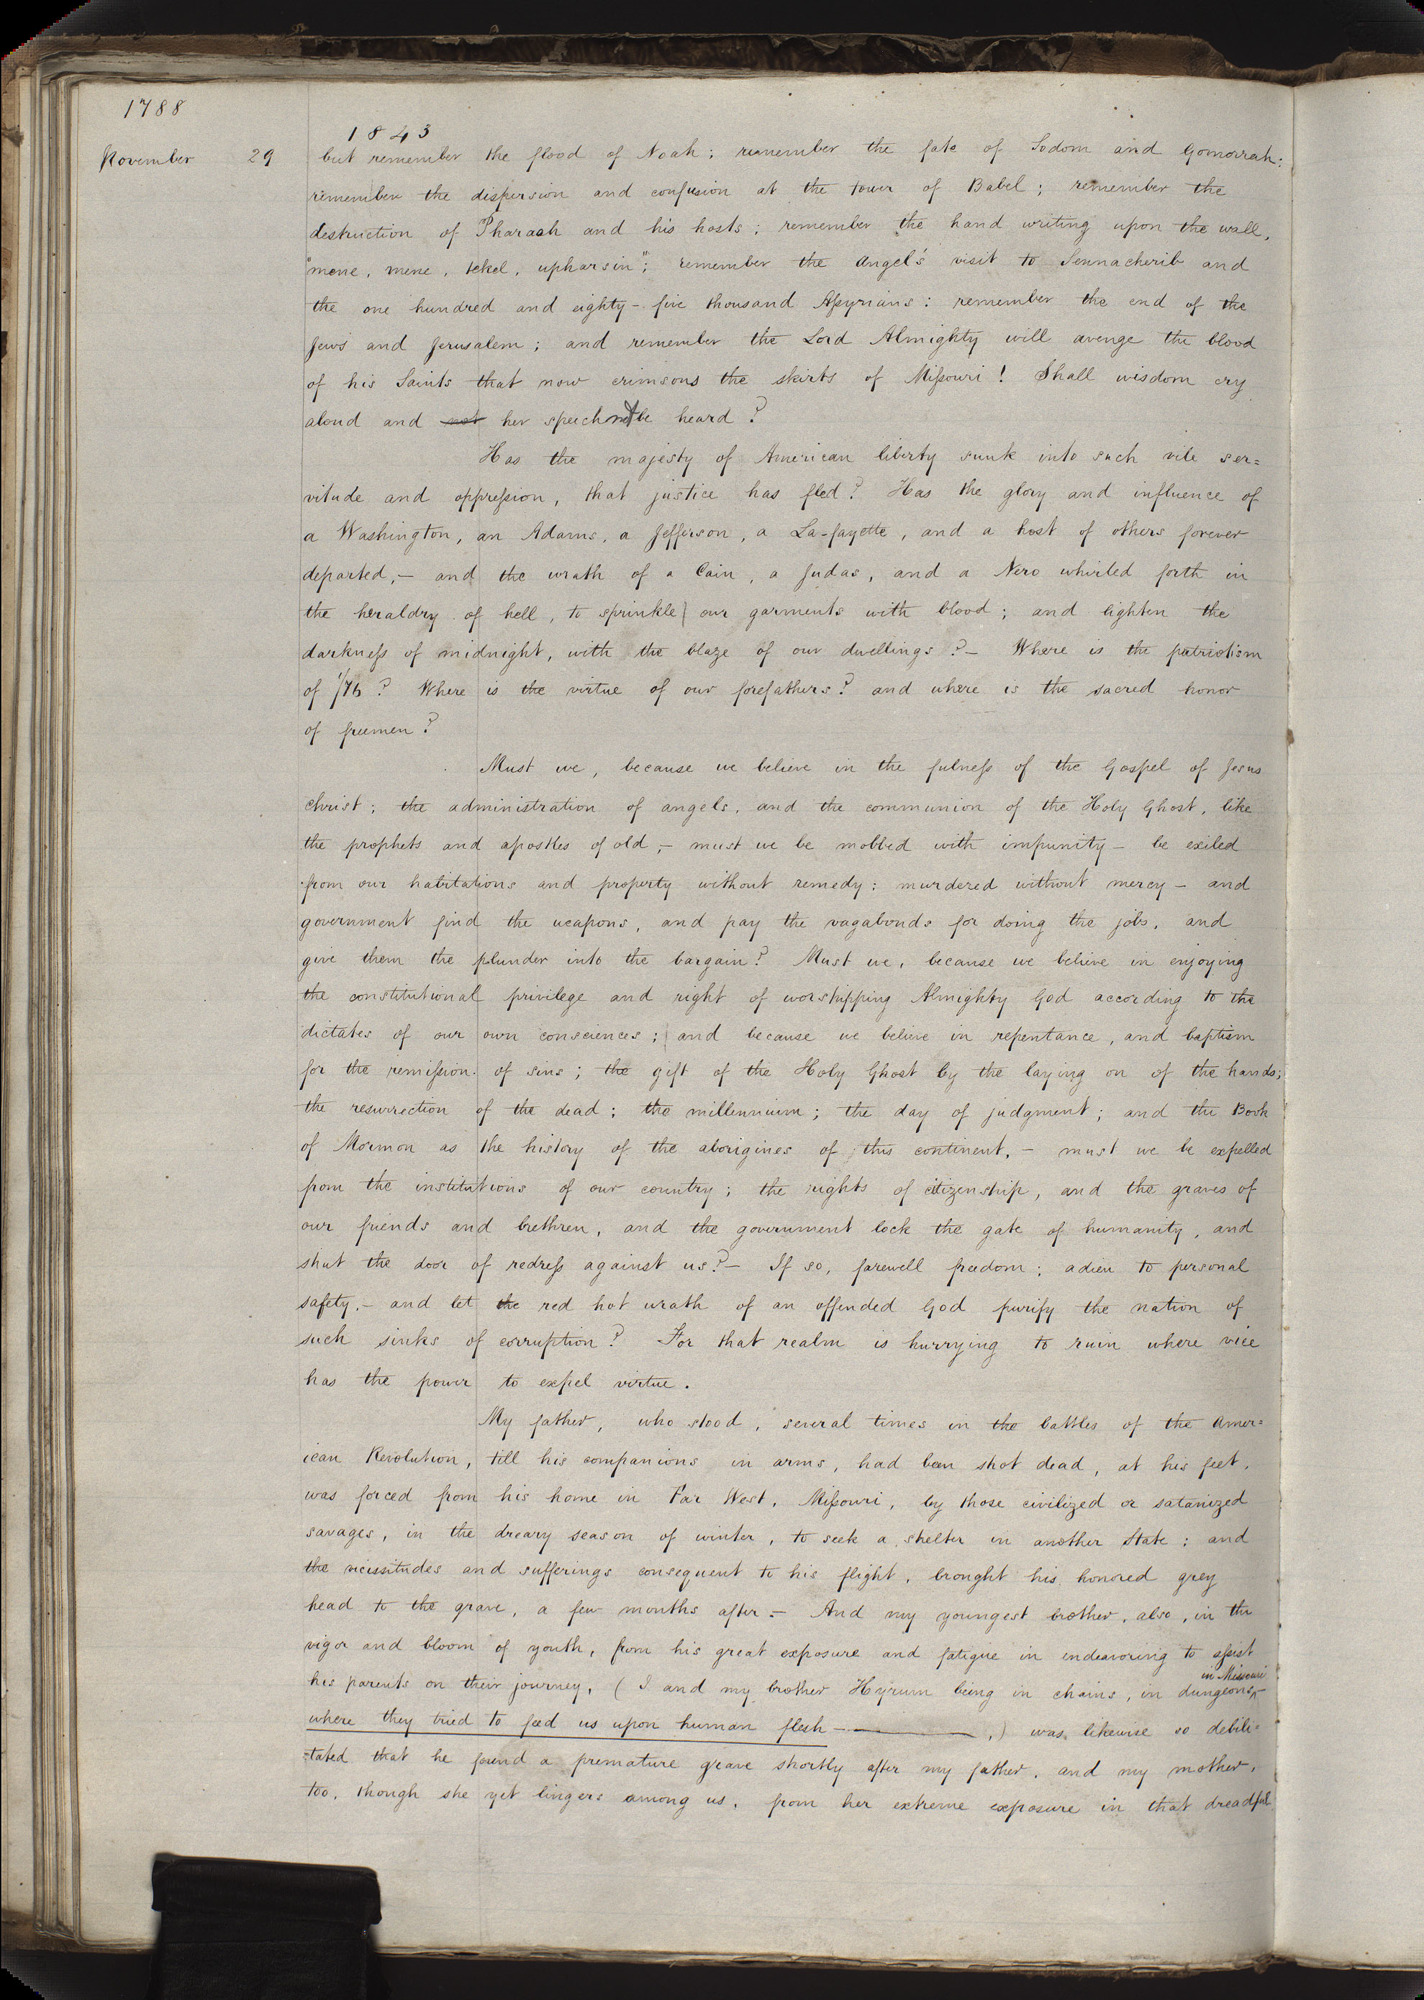 1788
1843
November 29 but remember the flood of Noah; remember the fate of Sodom and Gomorrah:
remember the dispersion and confusion at the tower of Babel; remember the
destruction of Pharaoh and his hosts; remember the hand writing upon the wall,
"mene, mene, tekel, upharsin"; remember the angel's visit to Sennacherib and
the one hundred and eighty-five thousand Assyrians: remember the end of the
Jews and Jerusalem; and remember the Lord Almighty will avenge the blood
of his Saints that now crimsons the skirts of Missouri! Shall wisdom cry
aloud and not her speech not be heard?
Has the majesty of American liberty sunk into such vile ser=
vitude and oppression, that justice has fled? Has the glory and influence of
a Washington, an Adams, a Jefferson, a La-fayette, and a host of others forever
departed,— and the wrath of a Cain, a Judas, and a Nero whirled forth in
the heraldry of hell, to sprinkle our garments with blood; and lighten the
darkness of midnight, with the blaze of our dwellings?— Where is the patriotism
of '76? Where is the virtue of our forefathers? and where is the sacred honor
of freemen?
Must we, because we believe in the fulness of the Gospel of Jesus
Christ; the administration of angels, and the communion of the Holy Ghost, like
the prophets and apostles of old,— must we be mobbed with impunity— be exiled
from our habitations and property without remedy: murdered without mercy— and
government find the weapons, and pay the vagabonds for doing the jobs, and
give them the plunder into the bargain? Must we, because we believe in enjoying
the constitutional privilege and right of worshipping Almighty God according to the
dictates of our own consciences; and because we believe in repentance, and baptism
for the remission of sins; the gift of the Holy Ghost by the laying on of the hands;
the resurrection of the dead; the millennium; the day of judgment; and the Book
of Mormon as the history of the aborigines of this continent,— must we be expelled
from the institutions of our country; the rights of citizenship, and the graves of
our friends and brethren, and the government lock the gate of humanity, and
shut the door of redress against us?— If so, farewell freedom; adieu to personal
safety,— and let the red hot wrath of an offended God purify the nation of
such sinks of corruption? For that realm is hurrying to ruin where vice
has the power to expel virtue.
My father, who stood, several times in the battles of the Amer=
ican Revolution, till his companions in arms, had been shot dead, at his feet,
was forced from his home in Far West, Missouri, by those civilized or satanized
savages, in the dreary season of winter, to seek a shelter in another State; and
the vicissitudes and sufferings consequent to his flight, brought his honored grey
head to the grave, a few months after.— And my youngest brother, also, in the
vigor and bloom of youth, from his great exposure and fatigue in endeavoring to assist
in Missouri
his parents on their journey, (I and my brother Hyrum being in chains, in dungeons,
where they tried to feed us upon human flesh ,) was likewise so debili=
=tated that he found a premature grave shortly after my father, and my mother,
too, though she yet lingers among us, from her extreme exposure in that dreadful